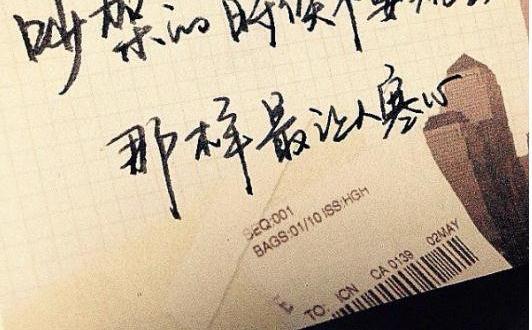 吵架的时候不要
那样最让人寒心
SEQ:001
BAGS:01/10 ISS:HGH
TO: ICN CA 0139 02MAY